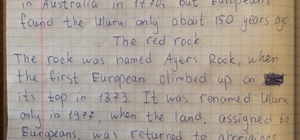 in Australia in 1770, but Europeans
found the Uluru only about 150 years ago.
The red rock
The rock was named Ayers Rock, when
the first European climbed up on
its top in 1873. It was renamed Uluru
only in 1977, when the land, assigned to
Europeans, was returned to aborigines